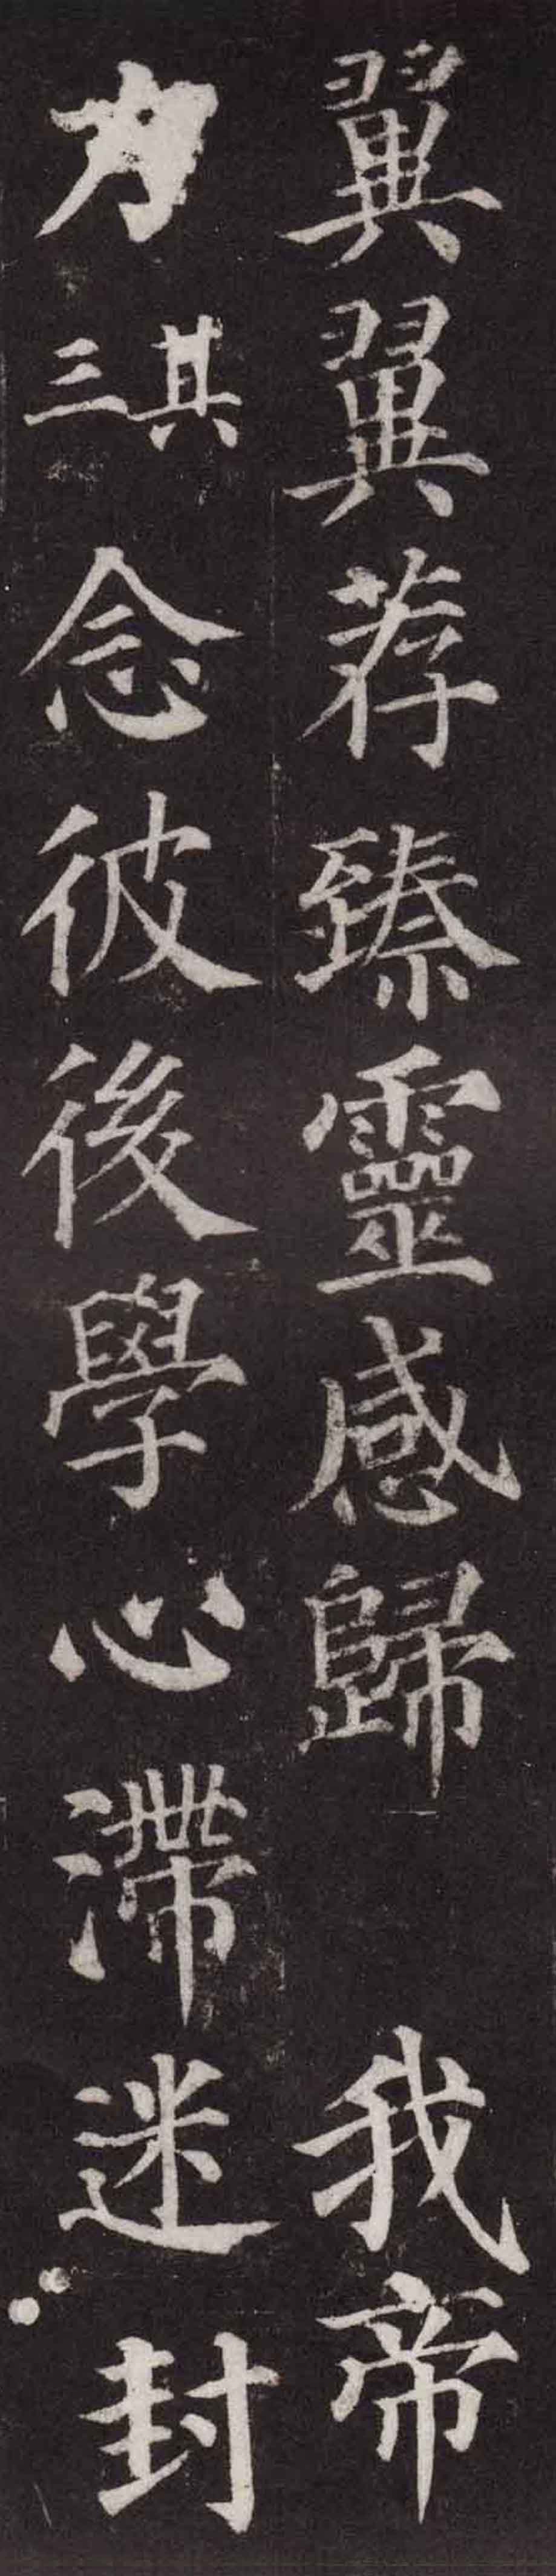 翼翼荐臻靈感歸 我帝
力其三念彼後學心滯迷封